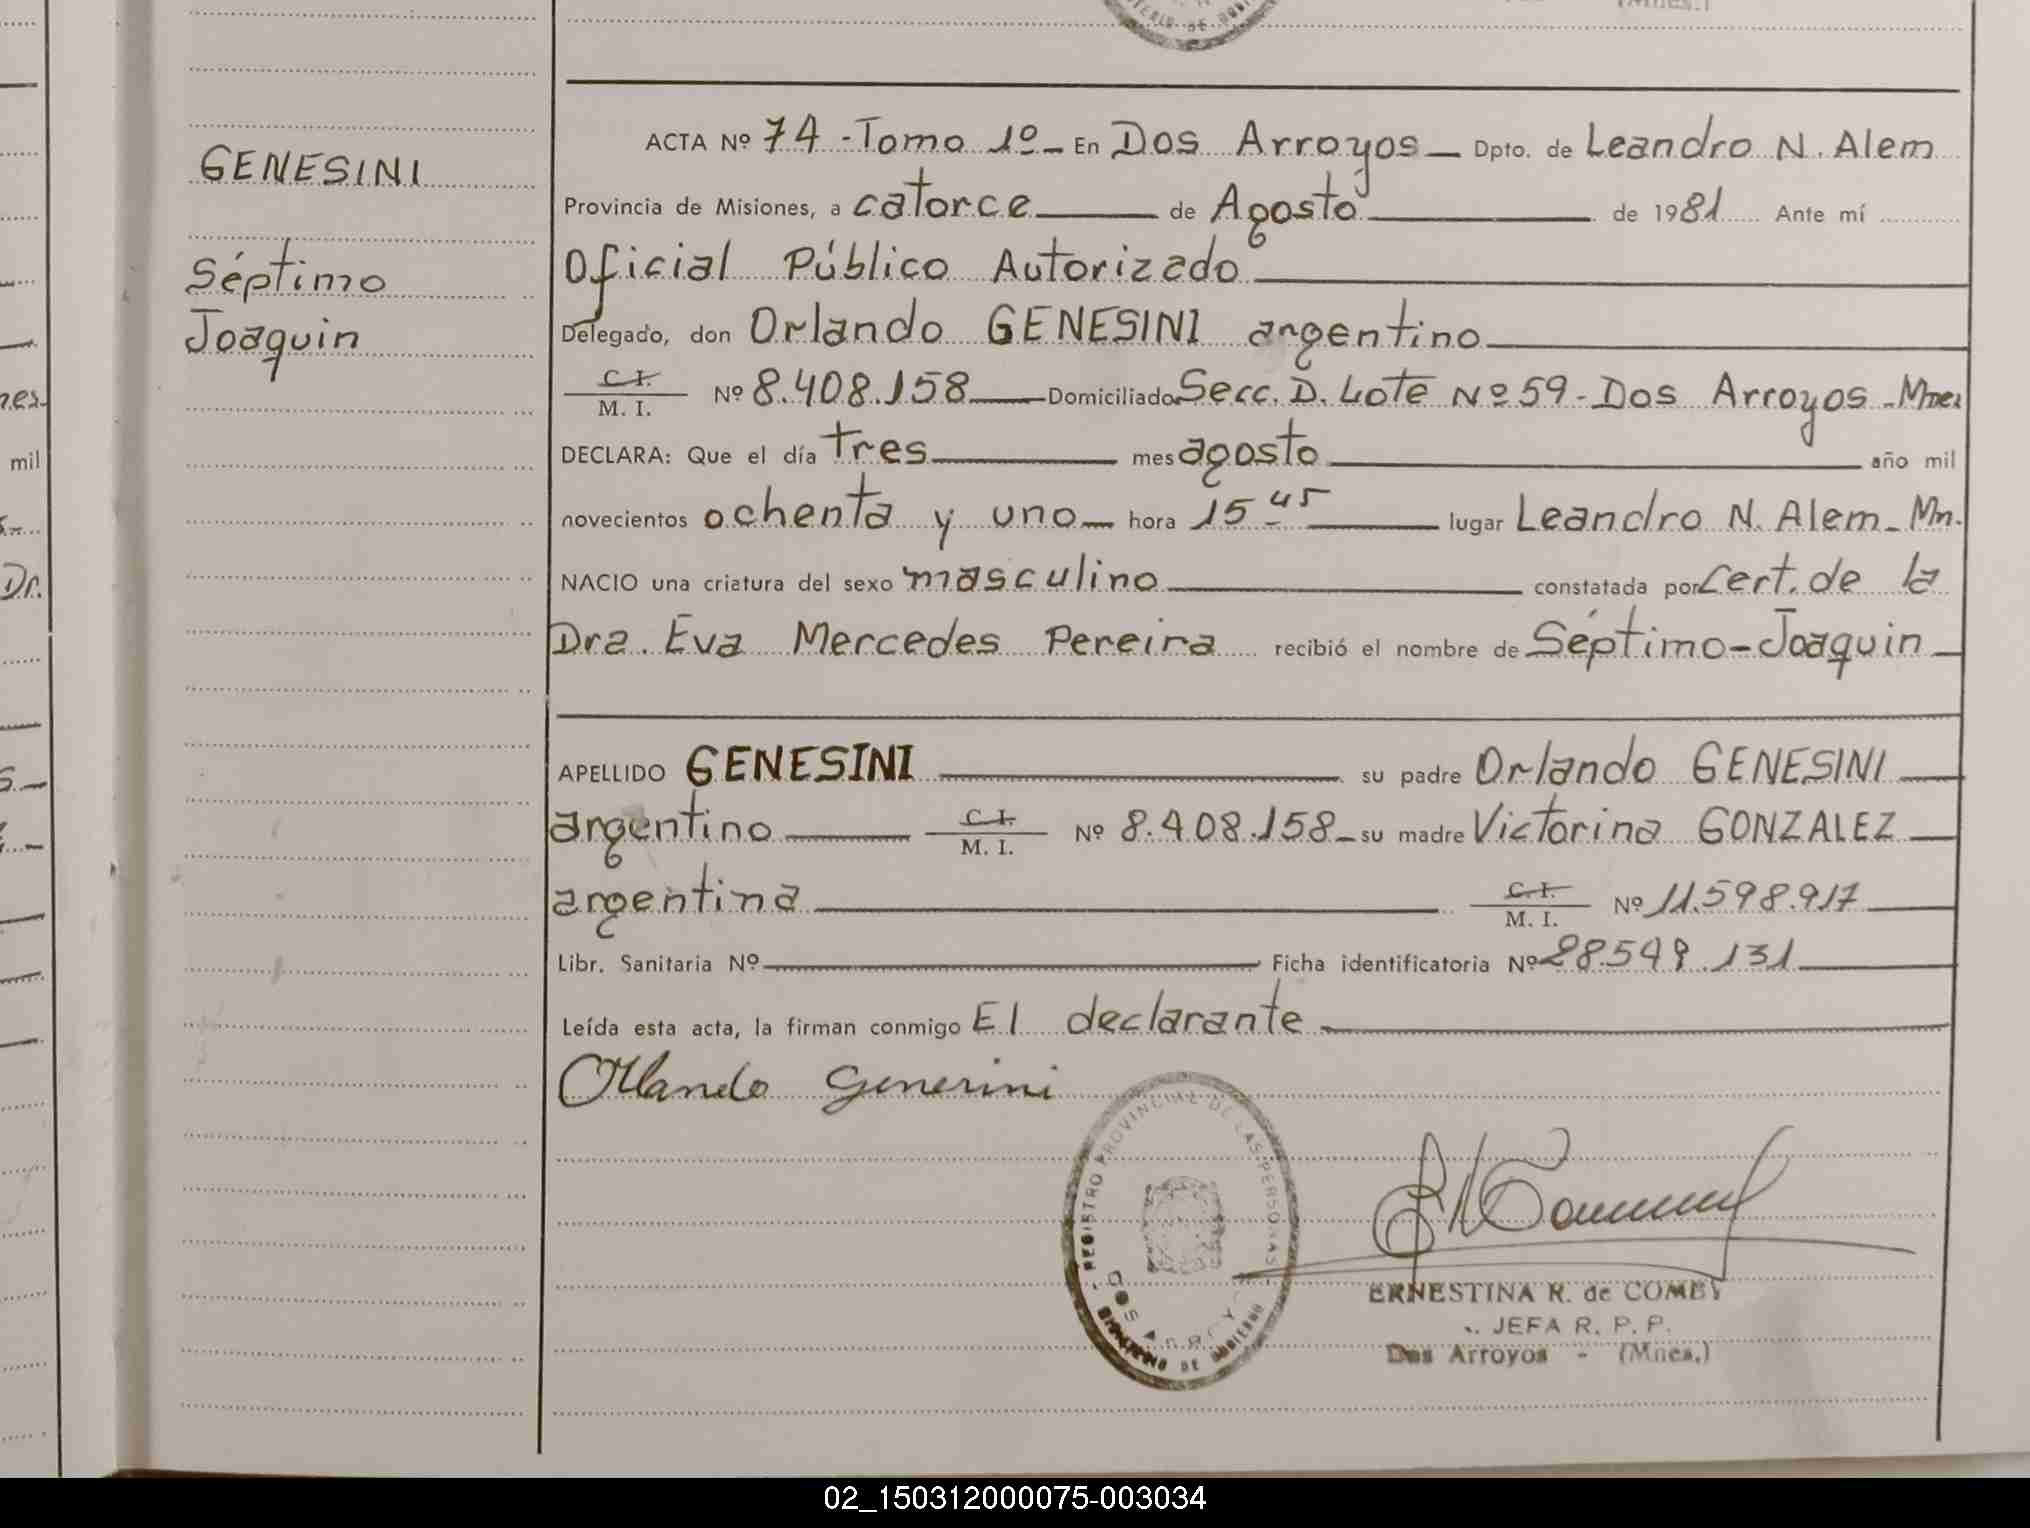 GENESINI
Séptimo
Joaquin
ACTA Nº 74 - Tomo 1º - En Dos Arroyos - Dpto. de Leandro N. Alem
Provincia de Misiones, a catorce de Agosto de 1981 Ante mí
Oficial Público Autorizado
Delegado, don Orlando GENESINI argentino
C.I. M. I. Nº 8.408.158 Domiciliado Secc. D. Lote Nº 59 - Dos Arroyos - Mnes
DECLARA: Que el día tres mes agosto año mil
novecientos ochenta y uno hora 15 45 lugar Leandro N. Alem - Mn.
NACIO una criatura del sexo masculino constatada por Cert. de la
Dra. Eva Mercedes Pereira recibió el nombre de Séptimo - Joaquin
APELLIDO GENESINI su padre Orlando GENESINI
argentino C.I. M. I. Nº 8.408.158 - su madre Victorina GONZALEZ
argentina C.I. M. I. Nº 11.598.917
Libr. Sanitaria Nº Ficha identificatoria Nº 28.549.131
Leída esta acta, la firman conmigo El declarante
Orlando Genesini
REGISTRO PROVINCIAL DE LAS PERSONAS
DOS ARROYOS
MINISTERIO DE GOBIERNO
ERNESTINA R. de COMBY
JEFA R. P. P.
Dos Arroyos - (Mnes.)
mil
Dr.
02_150312000075-003034